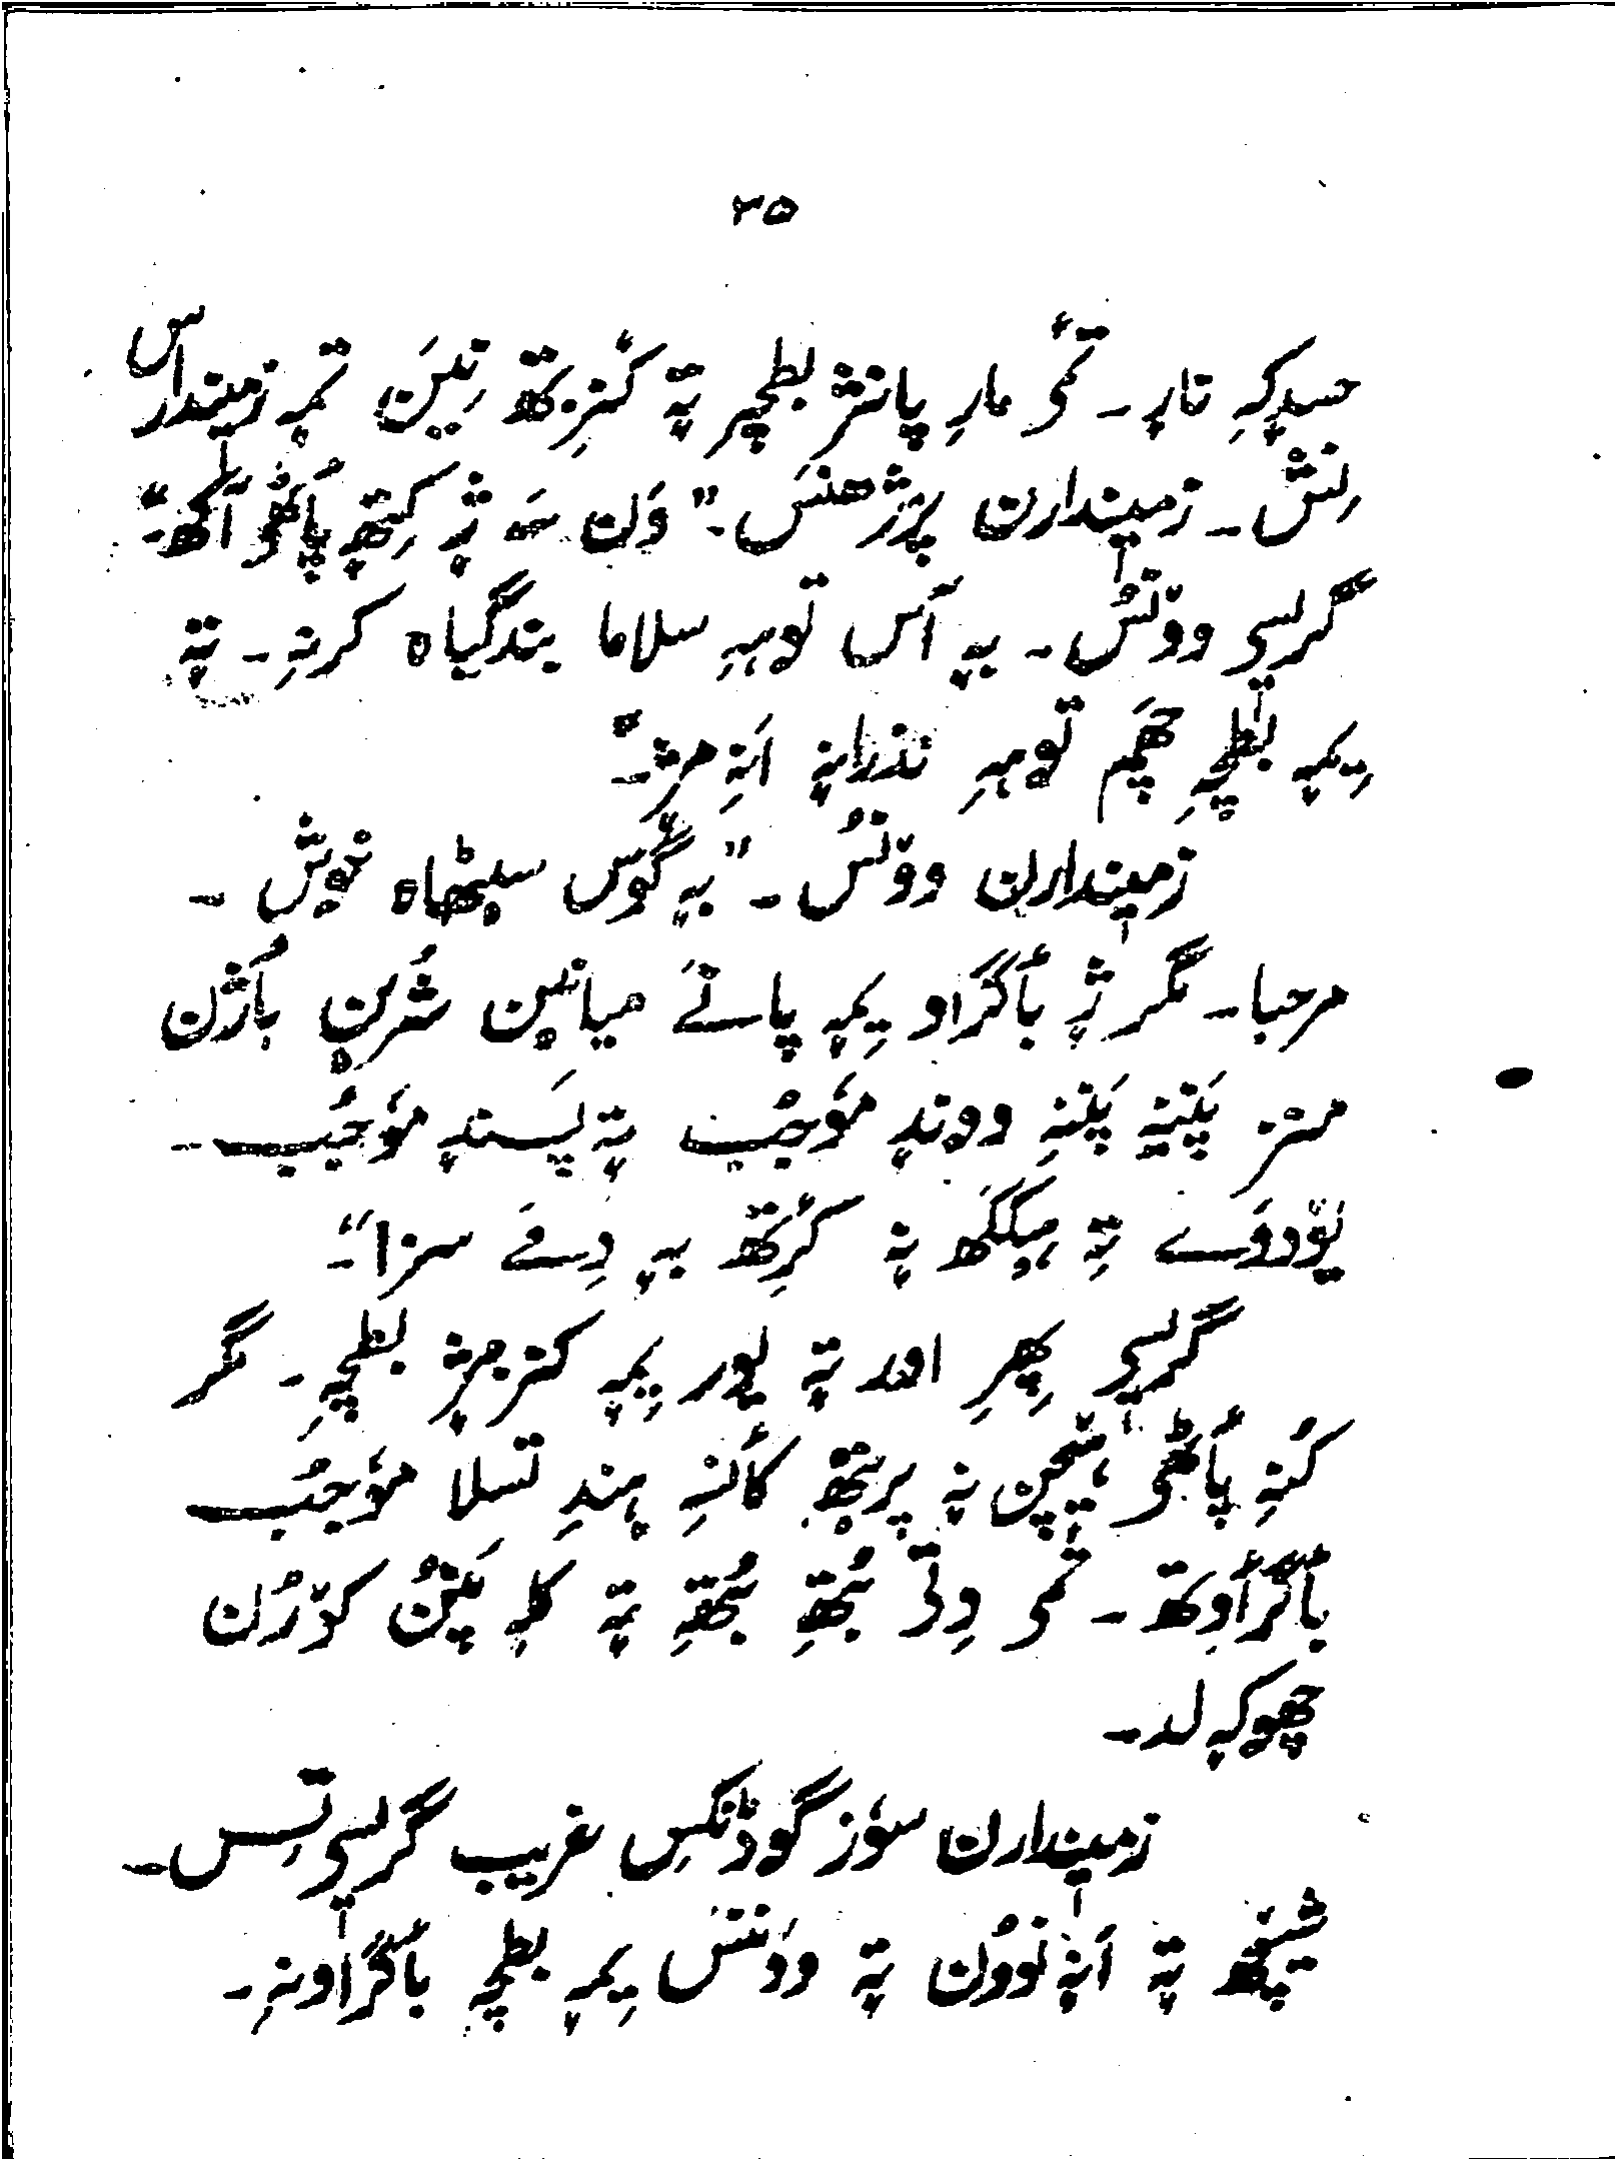 ۳۵
حسدکہِ نارٕ ۔ تٔمۍ مارِ پانژ بطچہِ تہٕ کٔنزِتھ نِیَن تمہٕ زمیندارس
نِش ۔ زمیندارن پرٕژھنس ۔ "وَن سَہ ژٕ کِتھٕ پٲٹھۍ آکھ"۔
گرٛسۍ ووٚنُس ۔ بہٕ آس توٚہہِ سلاما بندگیاہ کرنہِ ۔ تہٕ
یِمہٕ بطچہِ چھَم توٚہہِ نذرانہٕ اَنہِ مژٕ"۔
زمیندارن ووٚنُس ۔ "بہٕ گوس سیٹھاہ خوش ۔
مرحبا ۔ مگر ژٕ بٲگراو یِمہٕ پانے میانین شُرین باژن
منز پَننہِ پَننہِ ووندٕ موٗجُب تہٕ پسندٕ موٗجُب ۔
یوٚدوَے تہِ ہیکَکھ نہٕ کٔرِتھ بہٕ دِمے سزا"۔
گرٛسۍ پھِرِ اور تہٕ یور یِمہٕ کنزمژٕ بطچہِ ۔ مگر
کُنہِ پٲٹھۍ ہیٚچن نہٕ پرٛیتھ کٲنسہِ ہندِ تسلا موٗجُب
بٲگرٲوِتھ ۔ تٔمۍ دِتۍ بُتھۍ بُتھۍ تہٕ کلہٕ پَنُن کوٚرُن
چھوکہٕ لد ۔
زمیندارن سوٗز گوڈنکِس غریب گرٛسۍ تِس ۔
شیچھ تہٕ اَنہٕ نوٗوُن تہٕ ووٚننس یِمہٕ بطچہٕ بٲگراونہِ ۔